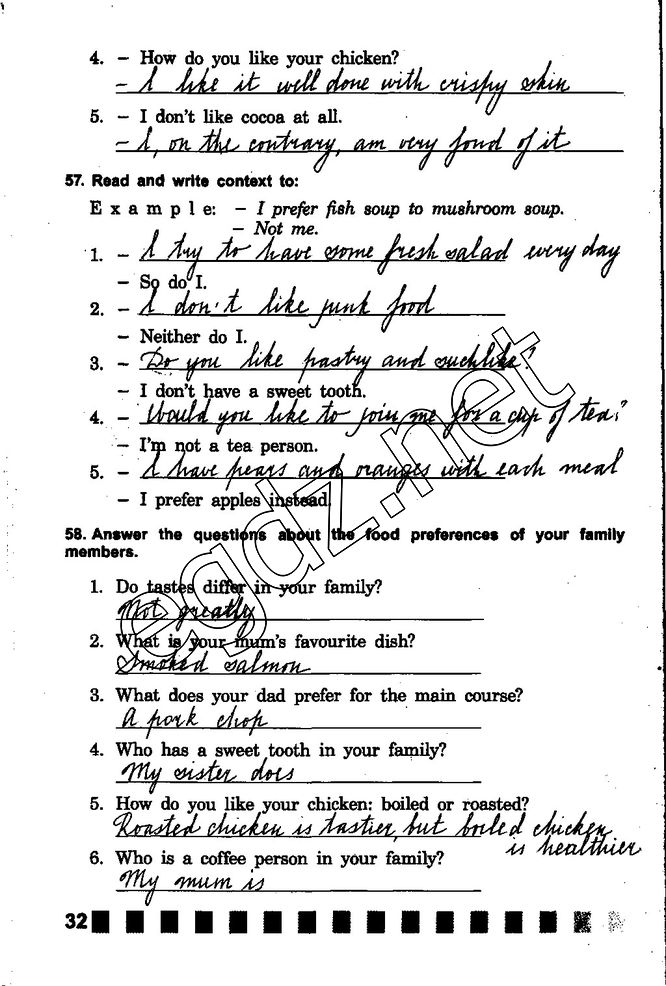 4. – How do you like your chicken?
– I like it well done with crispy skin
5. – I don't like cocoa at all.
– I, on the contrary, am very fond of it
57. Read and write context to:
E x a m p l e: – I prefer fish soup to mushroom soup.
– Not me.
1. – I try to have some fresh salad every day
– So do I.
2. – I don't like junk food
– Neither do I.
3. – Do you like pastry and suchlike?
– I don't have a sweet tooth.
4. – Would you like to join me for a cup of tea?
– I'm not a tea person.
5. – I have pears and oranges with each meal
– I prefer apples instead.
58. Answer the questions about the food preferences of your family
members.
1. Do tastes differ in your family?
Not greatly
2. What is your mum's favourite dish?
Smoked salmon
3. What does your dad prefer for the main course?
A pork chop
4. Who has a sweet tooth in your family?
My sister does
5. How do you like your chicken: boiled or roasted?
Roasted chicken is tastier, but boiled chicken
is healthier
6. Who is a coffee person in your family?
My mum is
32
egdz.net